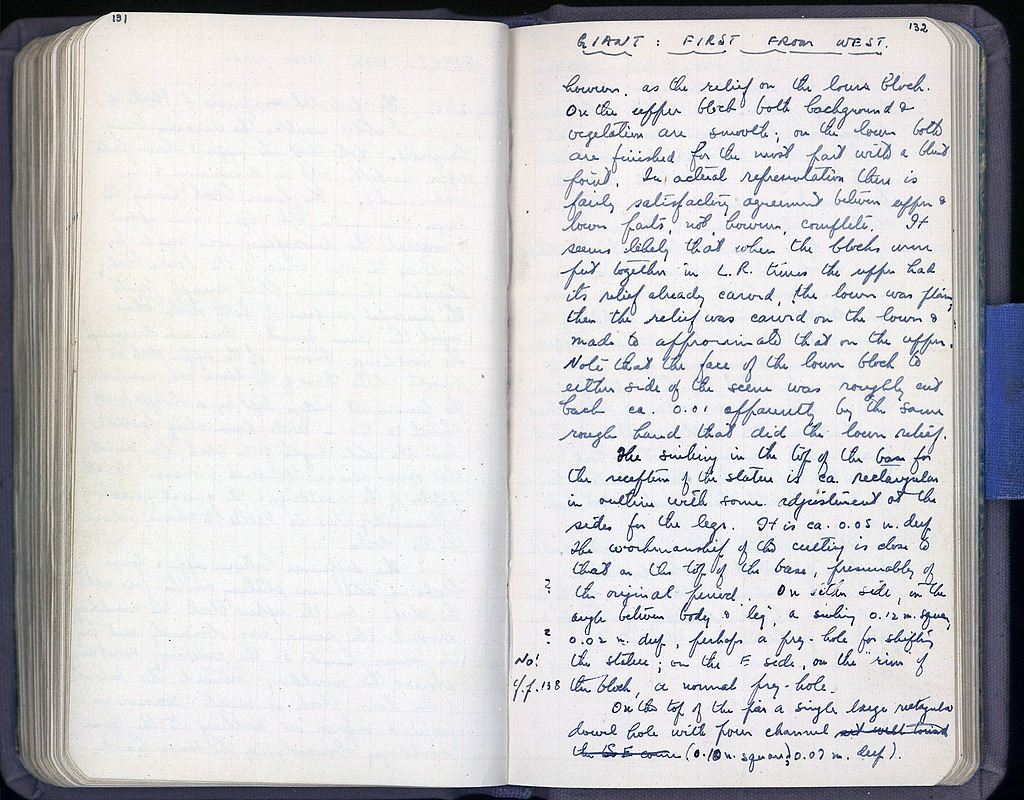 131
132
GIANT : FIRST FROM WEST.
however, as the relief on the lower block.
On the upper block both background &
vegetation are smooth; on the lower both
are finished for the most part with a blunt
point. In actual representation there is
fairly satisfactory agreement between upper &
lower parts, not, however, complete. It
seems likely that when the blocks were
put together in L.R. times the upper had
its relief already carved, the lower was plain;
then the relief was carved on the lower &
made to approximate that on the upper.
Note that the face of the lower block to
either side of the scene was roughly cut
back ca. 0.01 apparently by the same
rough hand that did the lower relief.
The sinking in the top of the base for
the reception of the statue is ca. rectangular
in outline with some adjustment at the
sides for the legs. It is ca. 0.05 m. deep.
The workmanship of this cutting is close to
that on the top of the base, presumably of
? the original period. On either side, in the
angle between body & leg, a sinking 0.12 m. square,
? 0.02 m. deep, perhaps a pry-hole for shifting
No! the statue; on the E side, on the rim of
c/f. p. 138 the block, a normal pry-hole.
On the top of the pier a single large rectangular
dowel hole with pour channel
the SE corner (0.10 m. square; 0.07 m. deep).